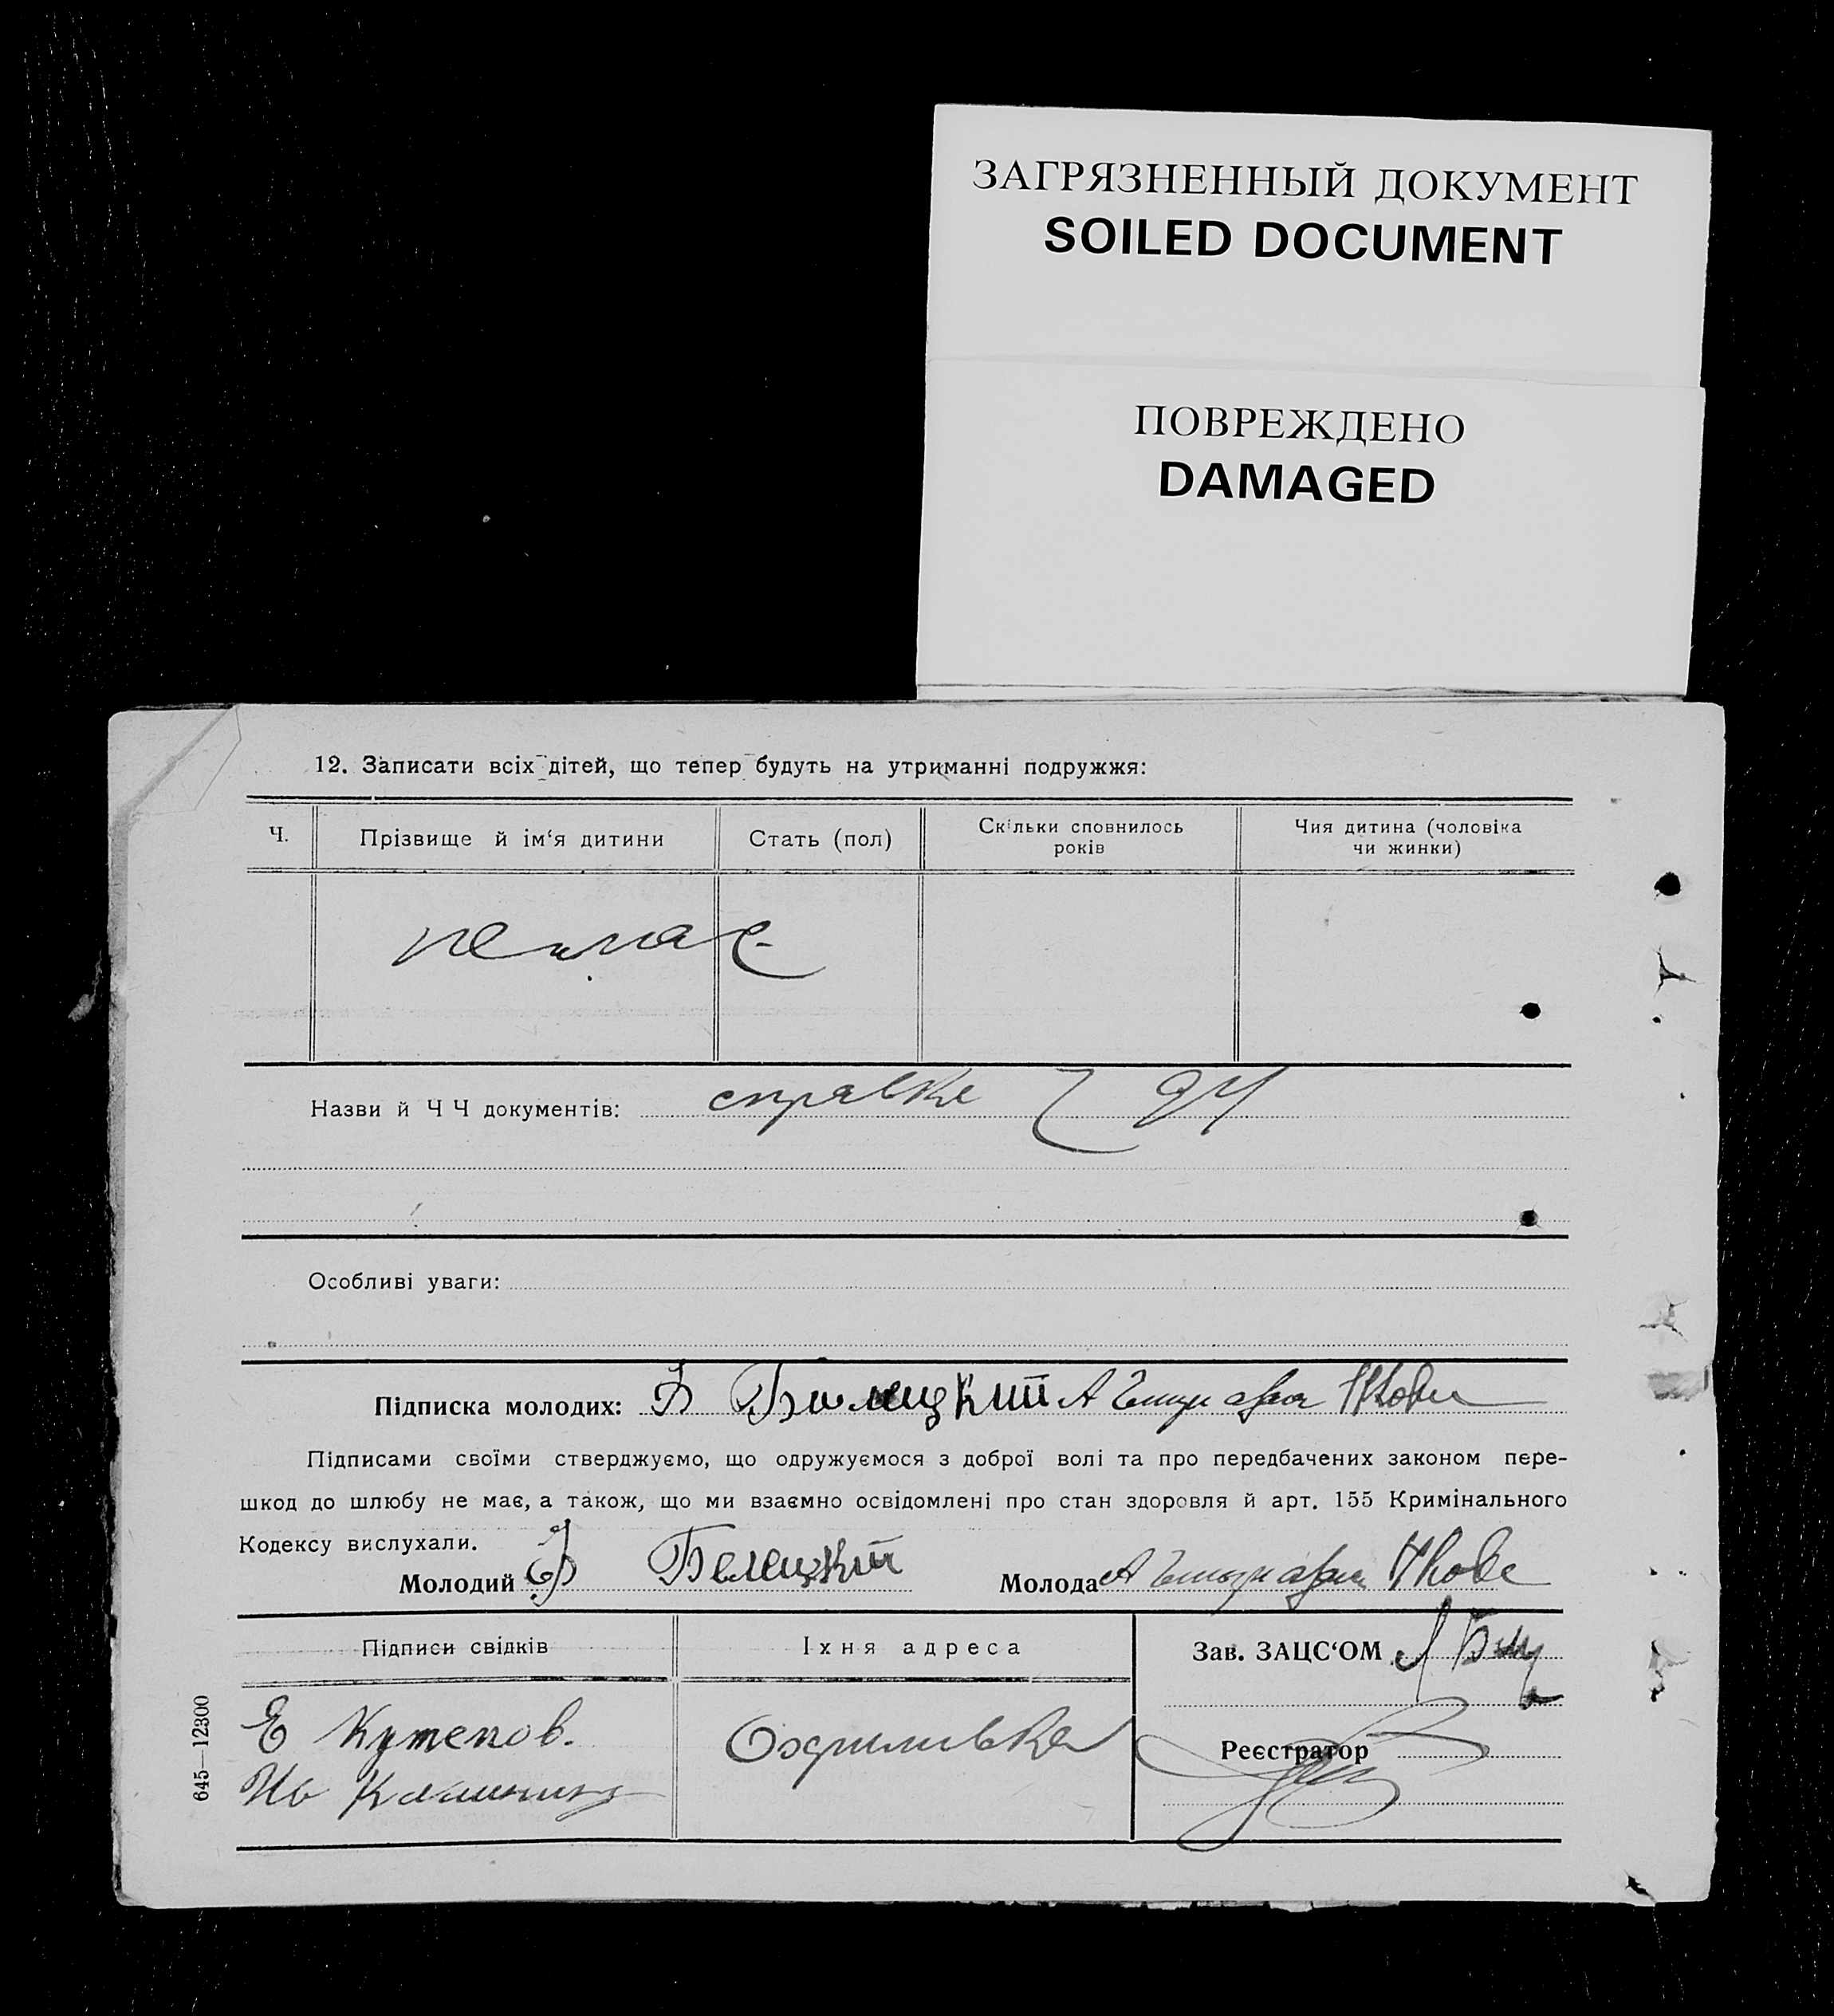 ЗАГРЯЗНЕННЫЙ ДОКУМЕНТ
SOILED DOCUMENT
ПОВРЕЖДЕНО
DAMAGED
12. Записати всіх дітей, що тепер будуть на утриманні подружжя:
Ч. Прізвище й ім‘я дитини Стать (пол) Скільки сповнилось років Чия дитина (чоловіка чи жинки)
немає
Назви й Ч Ч документів: справка
Особливі уваги:
Підписка молодих:
Підписами своїми стверджуємо, що одружуємося з доброї волі та про передбачених законом пере-
шкод до шлюбу не має, а також, що ми взаємно освідомлені про стан здоровля й арт. 155 Кримінального
Кодексу вислухали.
Молодий Ф Белецкий Молода
Підписи свідків Їхня адреса Зав. ЗАЦС‘ОМ
Е Кутепов.
Реєстратор
645—12300